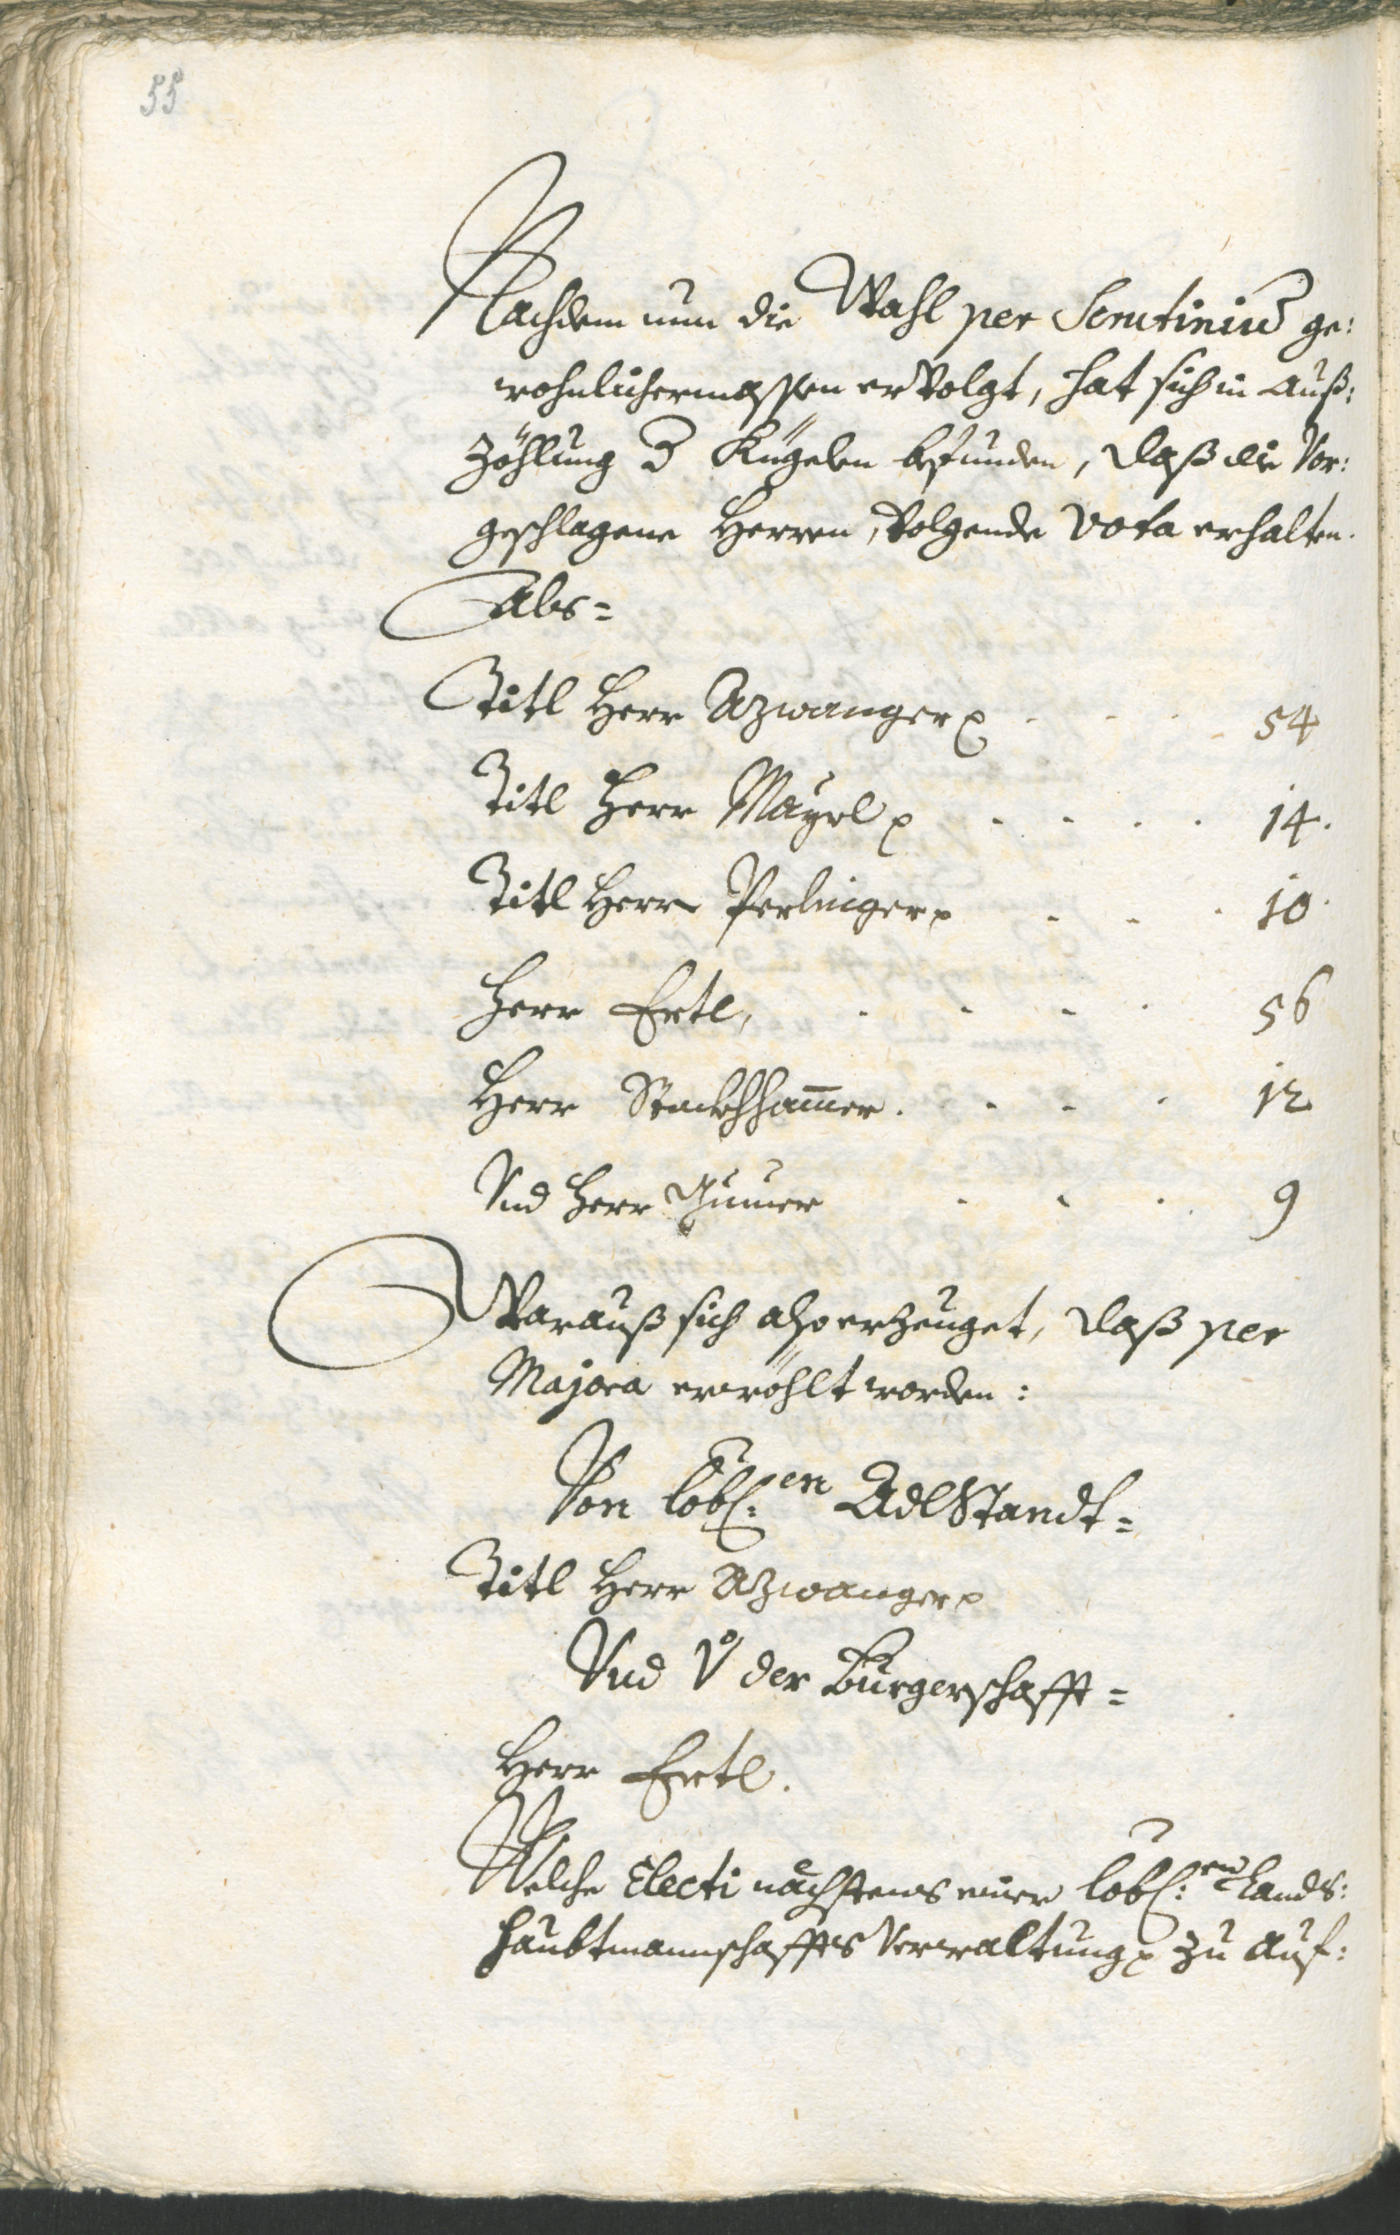 55
Nachdem nun die Wahl per Scrutiniu͂ ge:
wohnlichermassen ervolgt, hat sich in Auß:
zöhlung d Kugelen befunden, daß die Vor:
geschlagene Herren, volgende vota erhalten.
Als=
Titl Herr Azwanger p - - - - 54
Titl Herr Mayrl p - - - - 14.
Titl Herr Perlinger p - - - 10.
Herr Ertl, - - - - 56
Herr Stockhham̄er. - - - 12
Vnd Herr - - - 9
Warauß sich also erzeuget, daß per
Majora erwöhlt worden:
Von löbl:en AdlStandt=
Titl Herr Azwanger p
Vnd Vo der Burgerschafft=
Herr Ertl.
Welche Electi nächstens einer löbl:en Lands:
haubtmannschaffts Verwaltung p zu Auf: